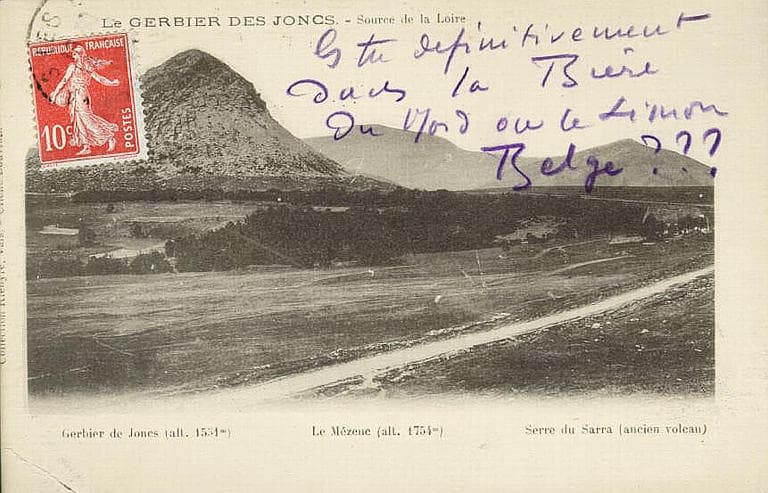 Le GERBIER DES JONCS. - Source de la Loire
Es tu definitivement
dans la Bière
Du Nord ou le Limon
Belge ???
RÉPUBLIQUE FRANÇAISE
10c POSTES
Gerbier de Joncs (alt. 1551m)
Le Mézenc (alt. 1754m)
Serre du Sarra (ancien volcan)